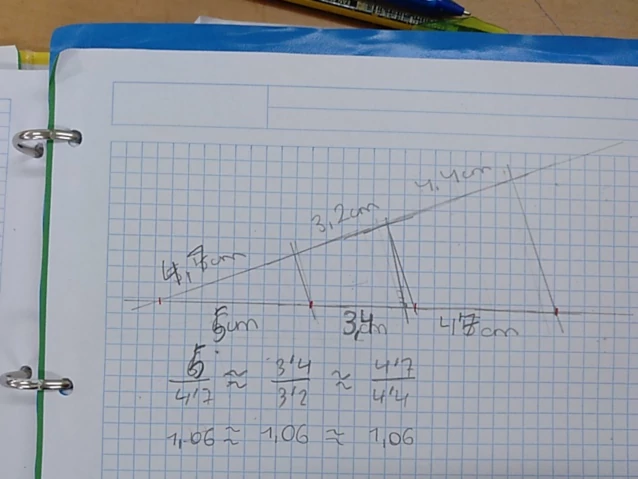 4,4cm
3,2cm
4,7cm
5cm 3,4cm 4'7cm
5/4'7 ≈ 3'4/3'2 ≈ 4'7/4'4
1,06 ≈ 1,06 ≈ 1,06